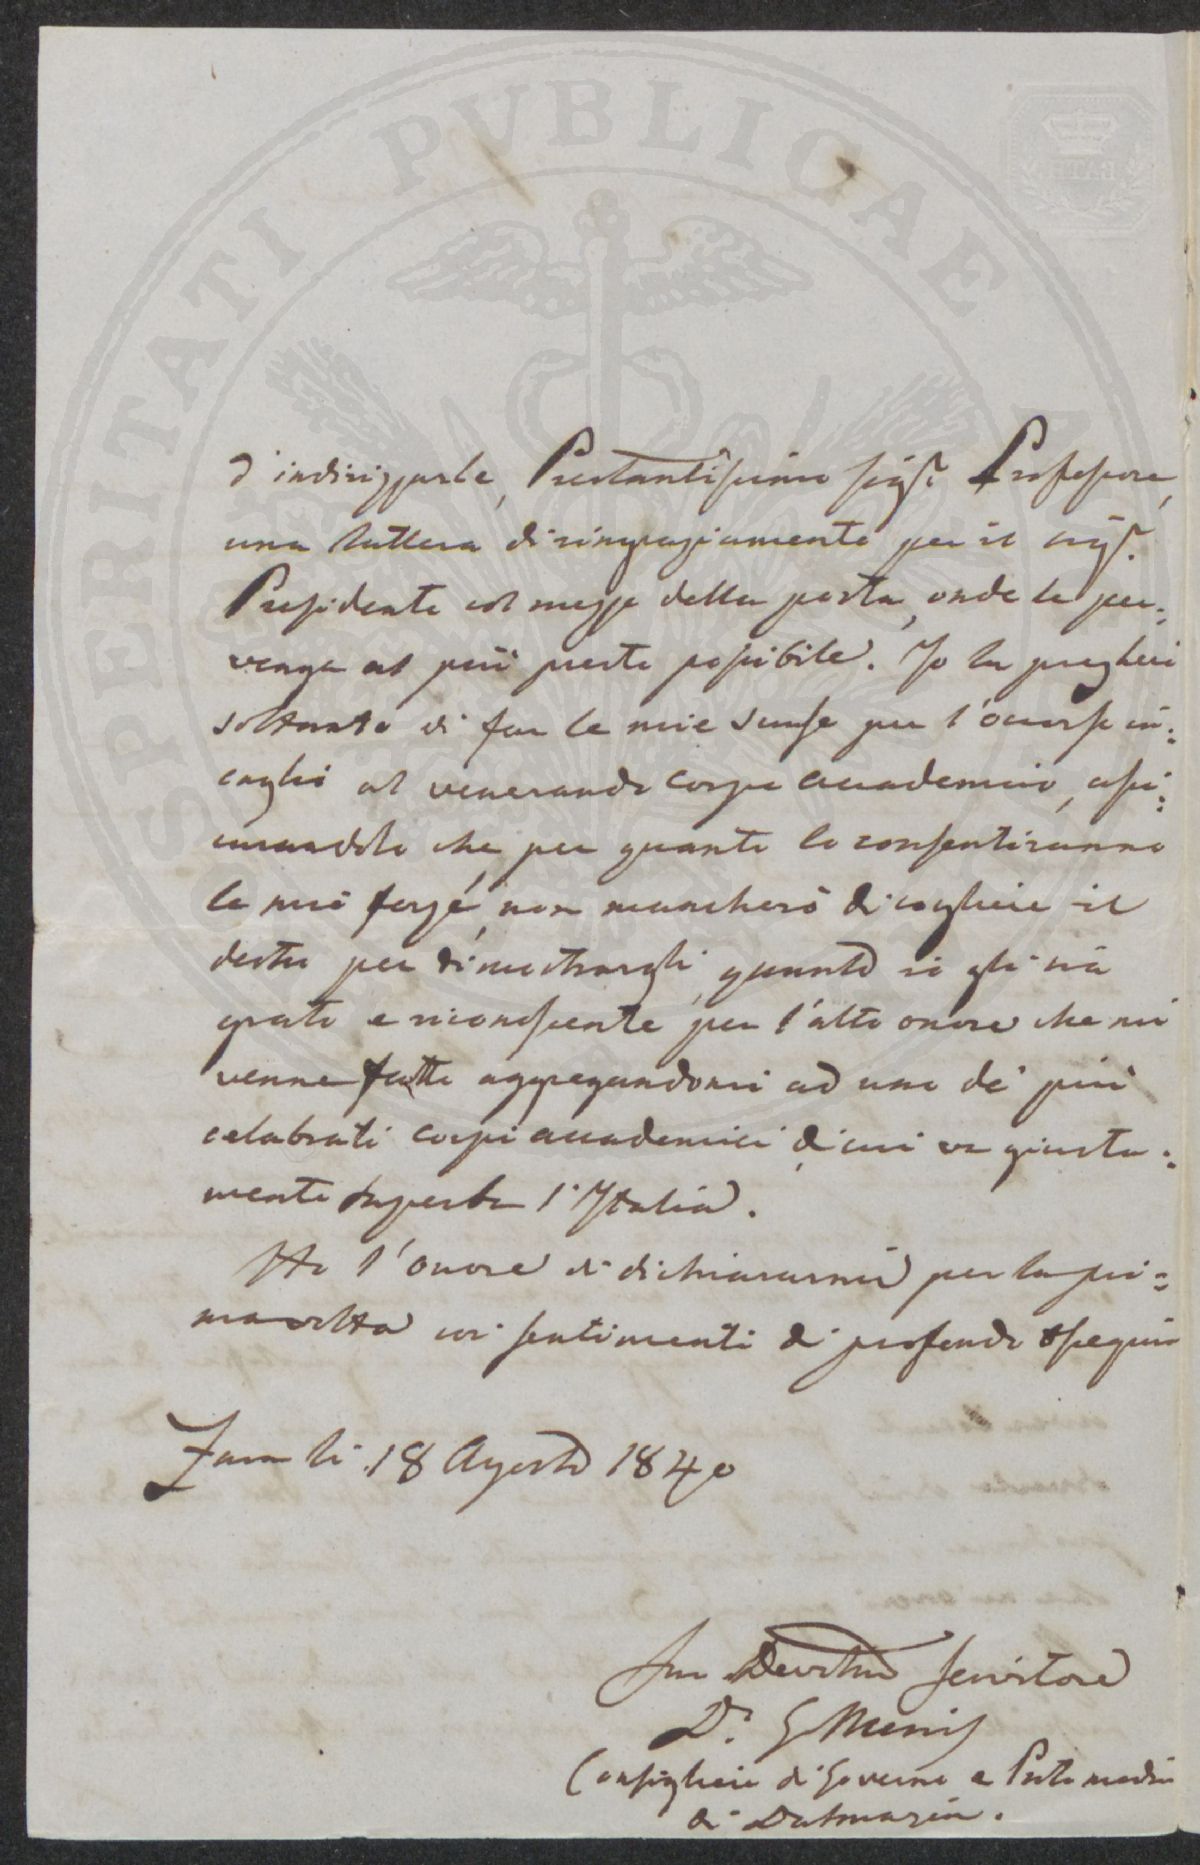 PROSPERITATI PVBLICAE A
BATH
d'indirizzarle, Prestantissimo Sigr. Professore,
una lettera di ringraziamento per il sigr.
Presidente col mezzo della posta, onde le per=
venga al più presto possibile. Io la pregherei
soltanto di far le mie scuse per l'occorso in=
caglio al venerando corpo accademico, assi=
curandolo che per quanto lo consentiranno
le mie forze, non mancherò di cogliere il
destro per dimostrargli, quanto io gli sia
grato e riconoscente per l'alto onore che mi
venne fatto aggregandomi ad uno de' più
celebrati corpi accademici, di cui va giusta=
mente superba l'Italia.
Ho l'onore di dichiararmi per la pri=
ma volta coi sentimenti di profondo ossequio
Zara li 18 Agosto 1840
Suo Devotmo servitore
Dr. G Menis
Consigliere di Governo e Protomedico
di Dalmazia.